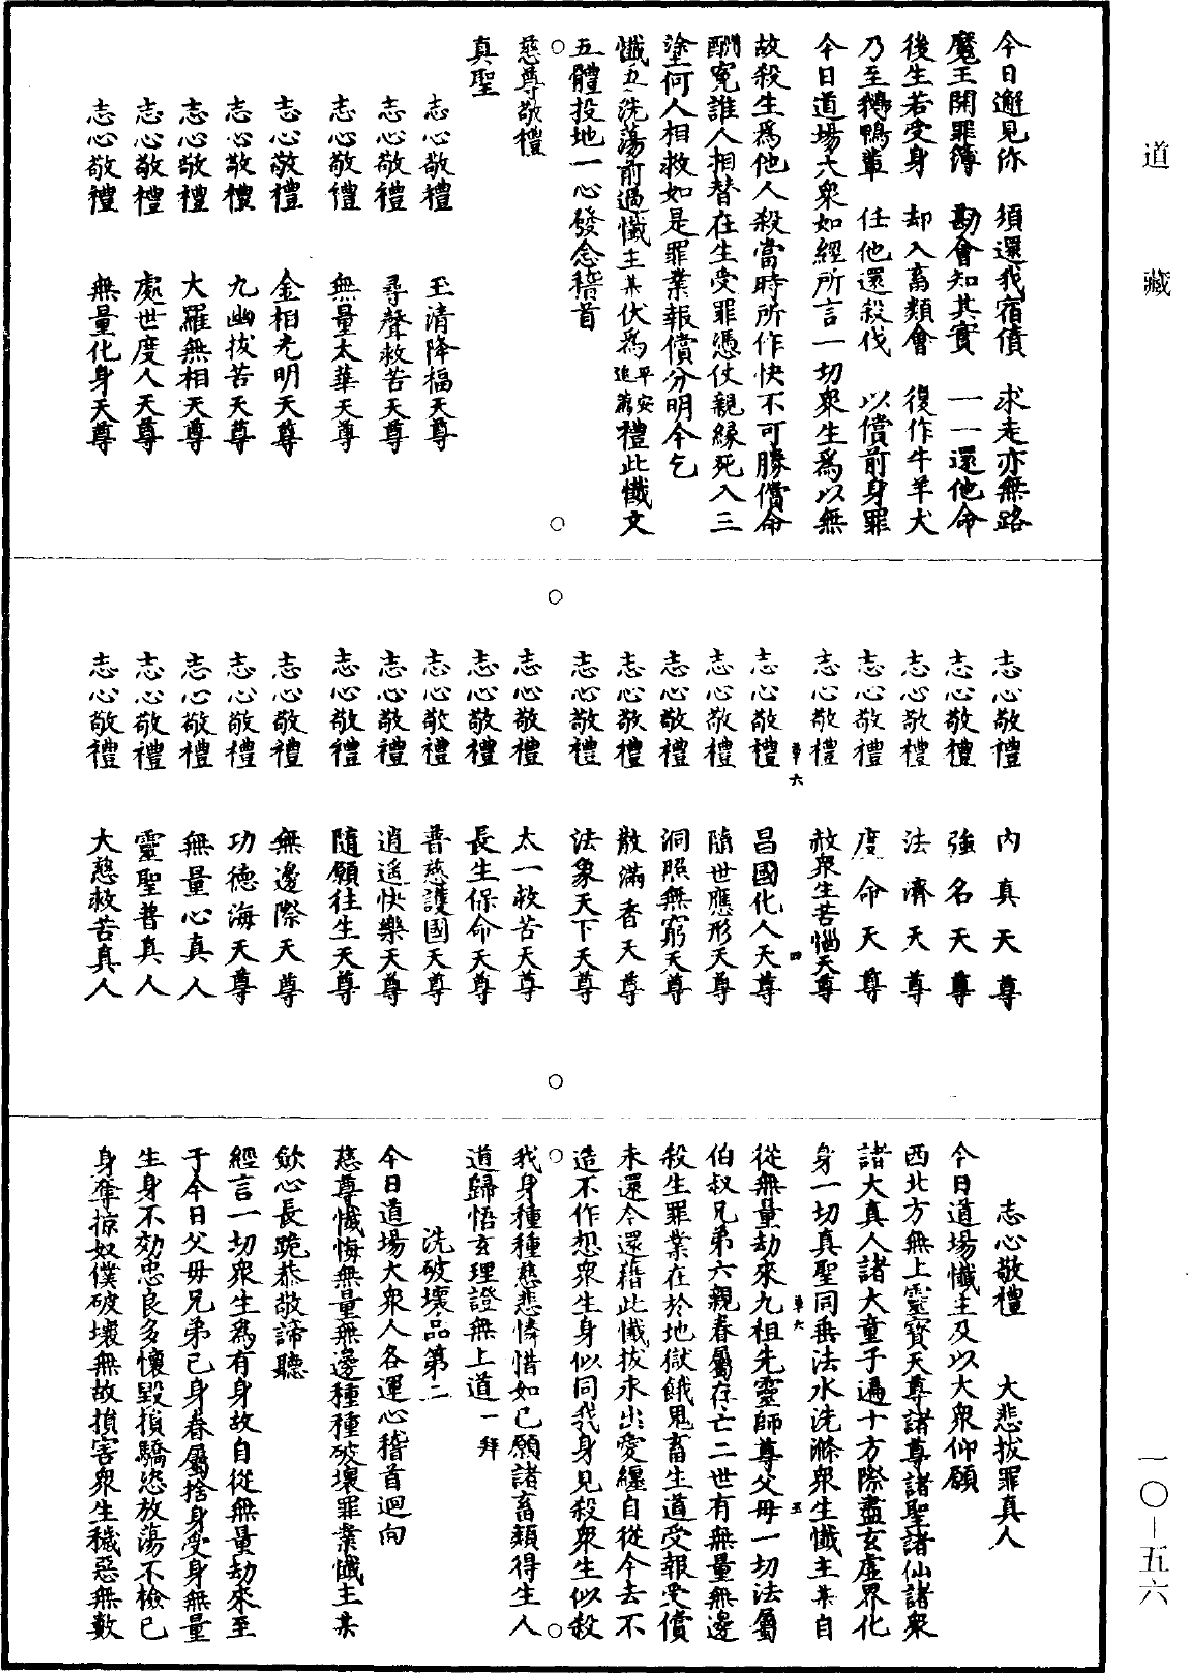 道藏
今日邂見你　須還我宿債　求走亦無路
魔王開罪簿　勘會知其實　一一還他命
後生若受身　却入畜類會　復作牛羊犬
乃至鵝鴨軰　任他還殺伐　以償前身罪
今日道場大衆如經所言一切衆生爲以無
故殺生爲他人殺當時所作快不可勝償命
酬寃誰人相替在生受罪憑仗親緣死入三
塗何人相救如是罪業報償分明今乞
懺立洗蕩前過懺主某伏爲平安追薦禮此懺文
五體投地一心發念稽首
慈尊敬禮
真聖
志心敬禮　玉清降福天尊
志心敬禮　尋聲救苦天尊
志心敬禮　無量太華天尊
志心敬禮　金相光明天尊
志心敬禮　九幽拔苦天尊
志心敬禮　大羅無相天尊
志心敬禮　處世度人天尊
志心敬禮　無量化身天尊
志心敬禮　內真天尊
志心敬禮　強名天尊
志心敬禮　法濟天尊
志心敬禮　度命天尊
志心敬禮　救衆生苦惱天尊
志心敬禮　昌國化人天尊
志心敬禮　隨世應形天尊
志心敬禮　洞照無窮天尊
志心敬禮　散滿香天尊
志心敬禮　法象天下天尊
志心敬禮　太一救苦天尊
志心敬禮　長生保命天尊
志心敬禮　普慈護國天尊
志心敬禮　逍遙快樂天尊
志心敬禮　隨願往生天尊
志心敬禮　無邊際天尊
志心敬禮　功德海天尊
志心敬禮　無量心真人
志心敬禮　靈聖普真人
志心敬禮　大慈救苦真人
志心敬禮　大悲拔罪真人
今日道場懺主及以大衆仰願
西北方無上靈寶天尊諸尊諸聖諸仙諸衆
諸大真人諸大童子遍十方際盡玄虛界化
身一切真聖同垂法水洗滌衆生懺主某自
從無量劫來九祖先靈師尊父母一切法屬
伯叔兄弟六親眷屬存亡二世有無量無邊
殺生罪業在於地獄餓鬼畜生道受報受償
未還今還藉此懺拔求出愛纏自從今去不
造不作想衆生身似同我身見殺衆生似殺
我身種種慈悲憐惜如己願諸畜類得生人
道歸悟玄理證無上道一拜
洗破壞品第二
今日道場大衆人各運心稽首迴向
慈尊懺悔無量無邊種種破壞罪業懺主某
歛心長跪恭敬諦聽
經言一切衆生爲有身故自從無量劫來至
于今日父母兄弟己身眷屬捨身受身無量
生身不効忠良多懷毀損驕恣放蕩不檢己
身奪掠奴僕破壞無故損害衆生穢惡無數
一〇－五六